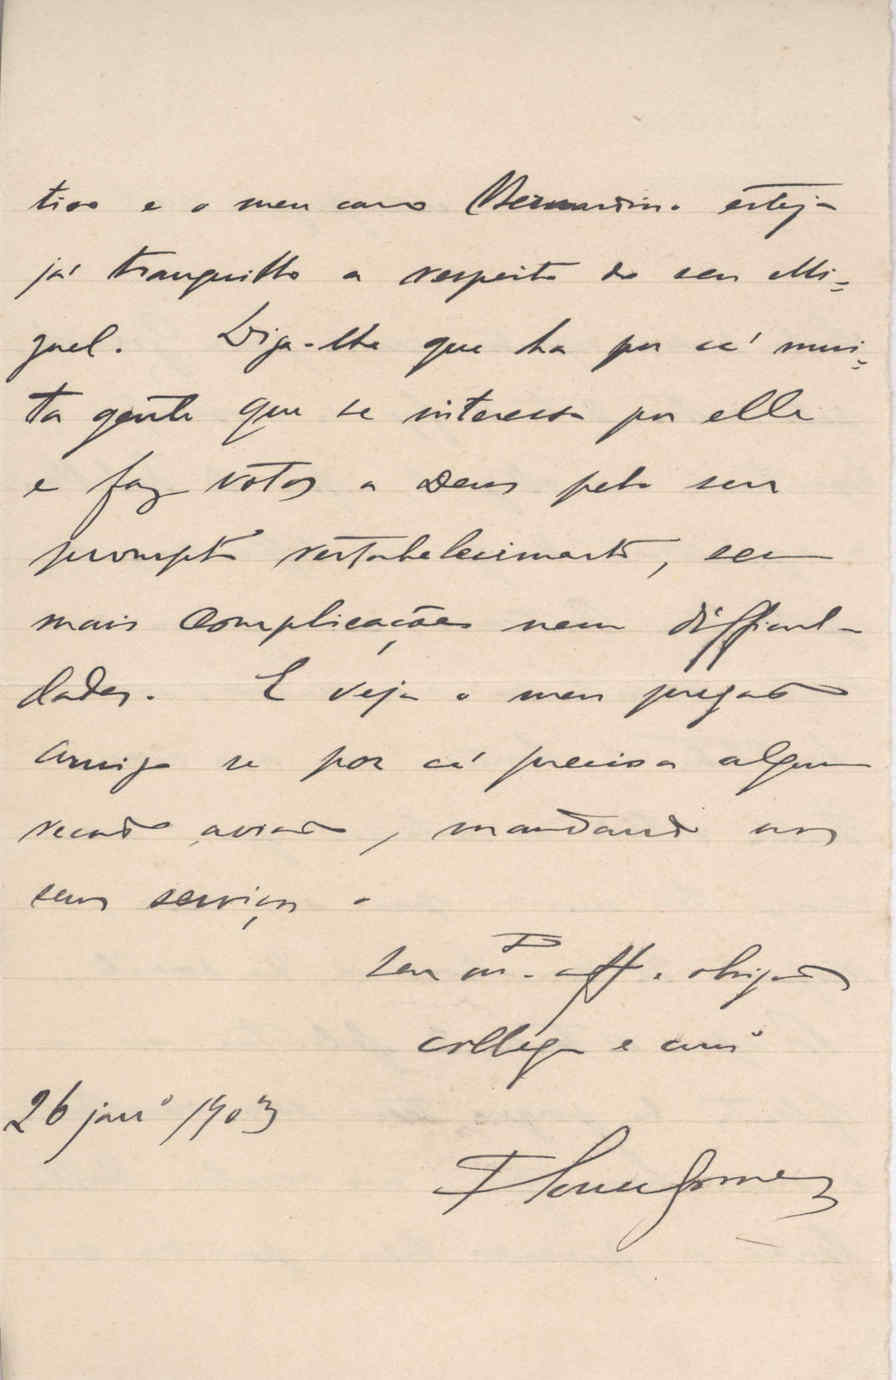 tivo e o meu caro Bernardino esteja
já tranquillo a respeito do seu Mi-
guel. Diga-lhe que ha por cá mui-
ta gente que se interessa por elle
e faz votos a Deus pelo seu
prompto restabelecimento, sem
mais complicações nem difficul-
dades. E veja o meu presado
amigo se por cá precisa algum
recado aviado, mandando aos
seus serviços.
Seu mto. aff. obrigado
collega e amo
26 janro 1903
F Gomes